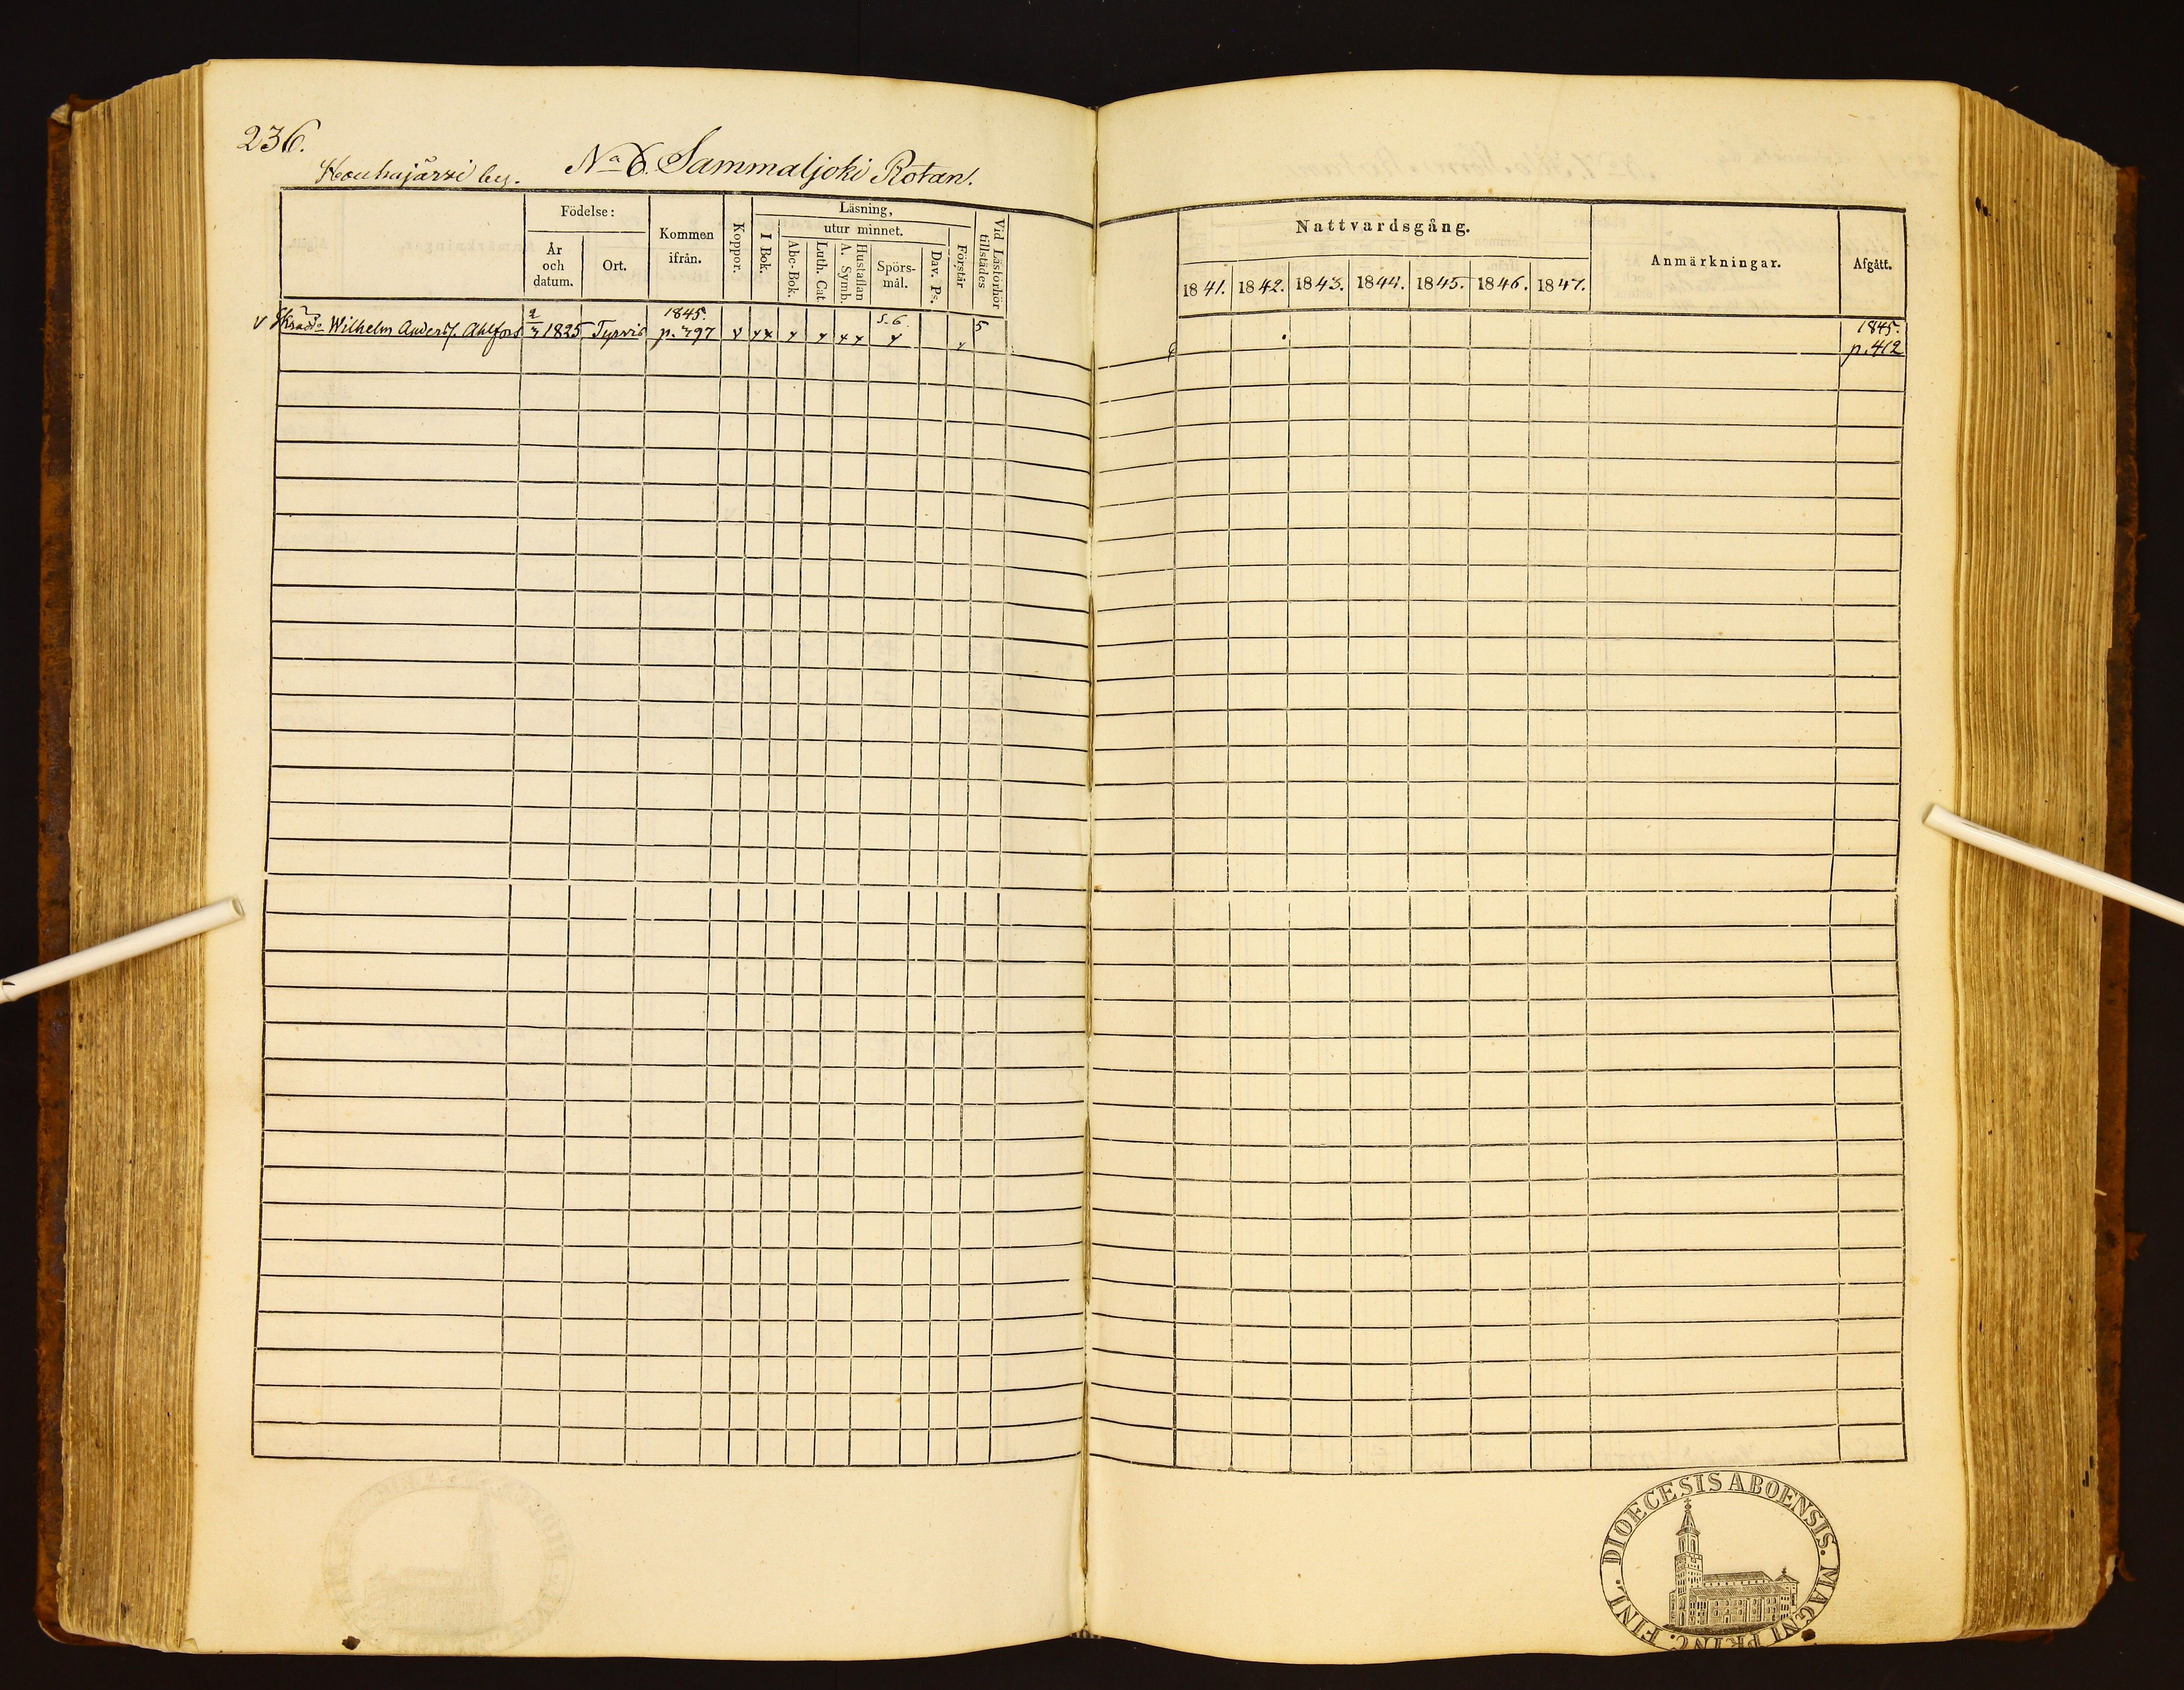 236.
Kouhajärvi by. No 6. Sammaljoki Rotan.
Födelse:
År och datum.
Ort.
Kommen ifrån.
Koppor.
Läsning,
I Bok.
utur minnet.
Abc-Bok.
Luth. Cat.
Hustaflan A. Symb.
Spörsmål.
Dav. Ps.
Förstår
Vid Läsförhör tillstädes
Nattvardsgång.
1841. 1842. 1843. 1844. 1845. 1846. 1847.
Anmärkningar.
Afgått.
v Wilhelm Anderss. Ahlfors 2/3 1825 Tyrvis 1845. p. 397 v x x x x x x 5.6. x x 5
1845. p. 412
DIOECESIS ABOENSIS. MAGNI PRINC. FINL.